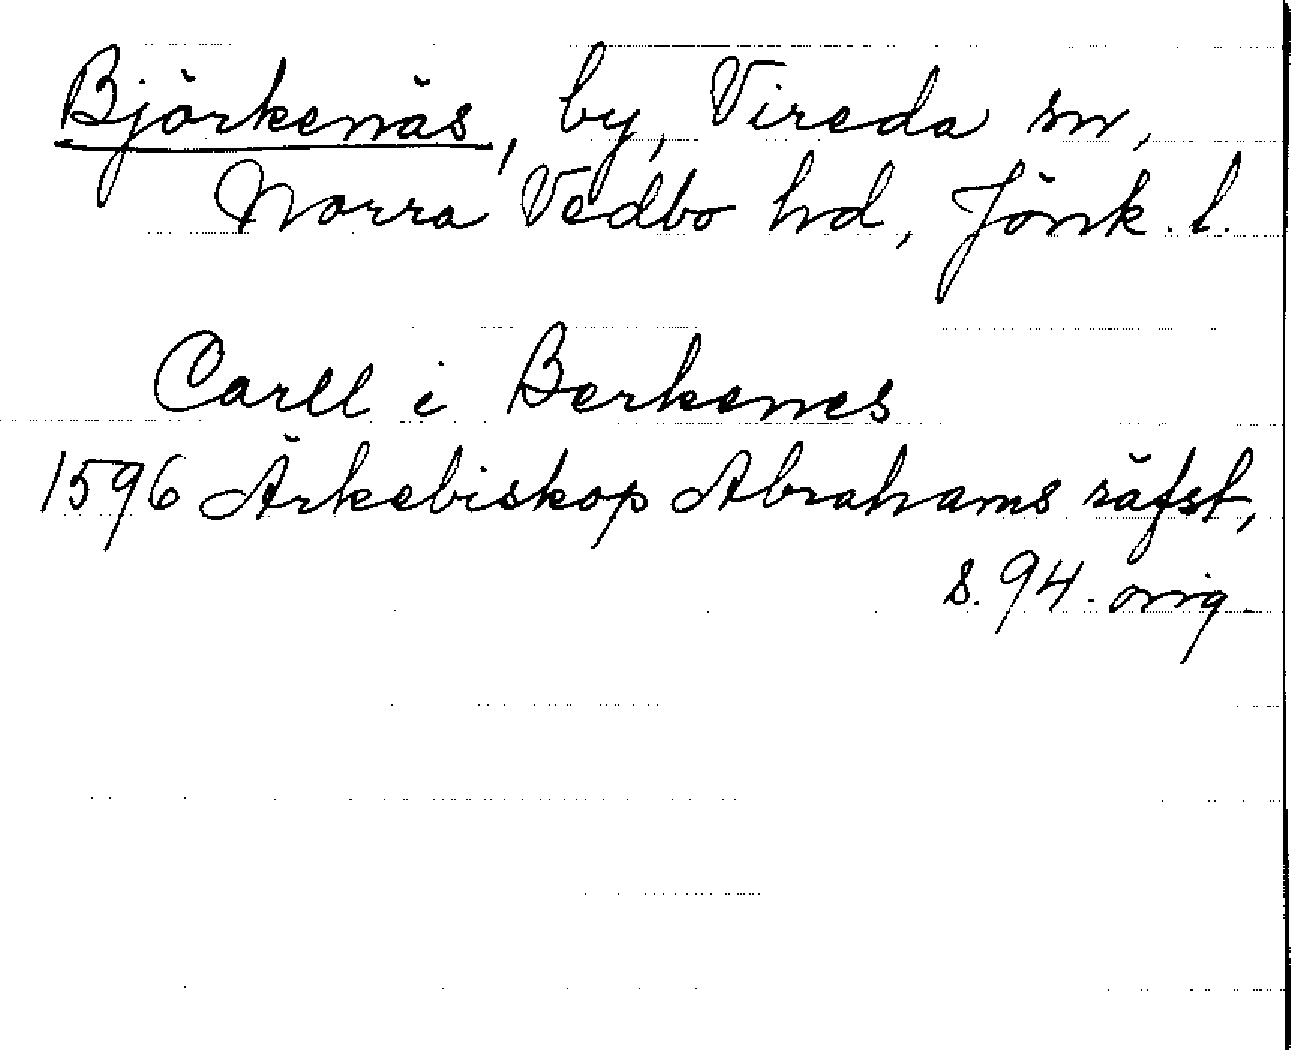 Björkenäs, by, Vireda sn,
Norra Vedbo hd, Jönk. l.
Carll i Berkenes
1596 Ärkebiskop Abrahams räfst,
s. 94. orig.